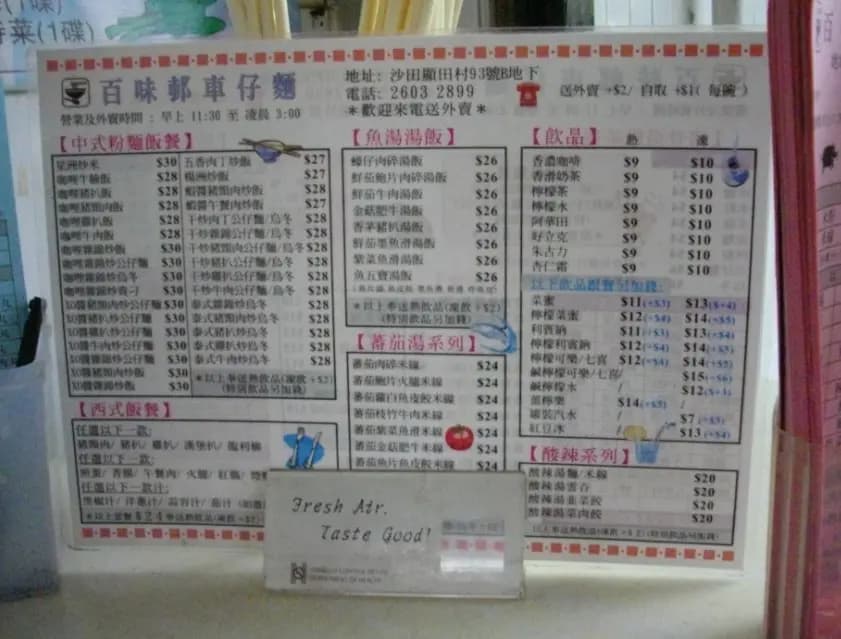 菜(1碟)
百味郵車仔麵
地址: 沙田顯田村93號B地下
電話: 2603 2899
*歡迎來電送外賣*
送外賣 +$2/ 自取 +$1( 每碗 )
營業及外賣時間 : 早上 11:30 至 凌晨 3:00
【中式粉麵飯餐】
星洲炒米 $30
咖喱牛腩飯 $28
咖喱豬扒飯 $28
咖喱豬頸肉飯 $28
咖喱雞扒飯 $28
咖喱牛肉飯 $28
咖喱雜錦炒飯 $30
咖喱雜錦炒公仔麵 $30
咖喱雜錦炒烏冬 $30
咖喱雜錦炒貴刁 $30
XO醬豬頸肉炒公仔麵 $30
XO醬豬扒炒公仔麵 $30
XO醬雞扒炒公仔麵 $30
XO醬雜錦炒公仔麵 $30
XO醬豬頸肉炒飯 $30
XO醬雜錦炒飯 $30
五香肉丁炒飯 $27
楊洲炒飯 $27
蝦醬豬頸肉炒飯 $28
蝦醬午餐肉炒飯 $27
干炒肉丁公仔麵/烏冬 $28
干炒雜錦公仔麵/烏冬 $28
干炒豬頸肉公仔麵/烏冬 $28
干炒豬扒公仔麵/烏冬 $28
干炒雞扒公仔麵/烏冬 $28
干炒牛肉公仔麵/烏冬 $28
泰式雜錦炒烏冬 $28
泰式豬頸肉炒烏冬 $28
泰式豬扒炒烏冬 $28
泰式雞扒炒烏冬 $28
泰式牛肉炒烏冬 $28
*以上奉送熱飲品(凍飲+$2)
(特別飲品另加錢)
【西式飯餐】
任選以下一款:
豬頸肉/ 豬扒/ 雞扒/ 漢堡扒/ 龍利柳
任選以下一款:
煎蛋/ 香腸/ 午餐肉/ 火腿/
任選以下一款汁:
黑椒汁/ 洋蔥汁/ 蒜蓉汁/ 茄汁
*以上套餐$24奉送熱飲品(凍飲+$2)
【魚湯湯飯】
蠔仔肉碎湯飯 $26
鮮茄鮑片肉碎湯飯 $26
鮮茄牛肉湯飯 $26
金菇肥牛湯飯 $26
香茅豬扒湯飯 $26
鮮茄墨魚滑湯飯 $26
紫菜魚滑湯飯 $26
魚五寶湯飯 $26
*以上奉送熱飲品(凍飲+$2)
(特別飲品另加錢)
【蕃茄湯系列】
蕃茄肉碎米線 $24
蕃茄鮑片火腿米線 $24
蕃茄蘿白魚皮餃米線 $24
蕃茄枝竹牛肉米線 $24
蕃茄紫菜魚滑米線 $24
蕃茄金菇肥牛米線 $24
蕃茄魚片魚皮餃米線 $24
【飲品】 熱 凍
香濃咖啡 $9 $10
香滑奶茶 $9 $10
檸檬茶 $9 $10
檸檬水 $9 $10
阿華田 $9 $10
好立克 $9 $10
朱古力 $9 $10
杏仁霜 $9 $10
以下飲品跟餐另加錢:
菜蜜 $11(+$3) $13(+$4)
檸檬菜蜜 $12(+$4) $14(+$5)
利賓納 $11(+$3) $13(+$4)
檸檬利賓納 $12(+$4) $14(+$5)
檸檬可樂/七喜 $12(+$4) $14(+$5)
鹹檸檬可樂/七喜 / $15(+$6)
鹹檸檬水 / $12(+$3)
$14(+$5) /
罐裝汽水 / $7(+$3)
紅豆冰 / $13(+$4)
【酸辣系列】
酸辣湯麵/米線 $20
酸辣湯雲吞 $20
酸辣湯韭菜餃 $20
酸辣湯菜肉餃 $20
以上奉送熱飲(凍飲+$2)(特別飲品另加錢)
Fresh Air.
Taste Good!
TOBACCO CONTROL OFFICE
DEPARTMENT OF HEALTH